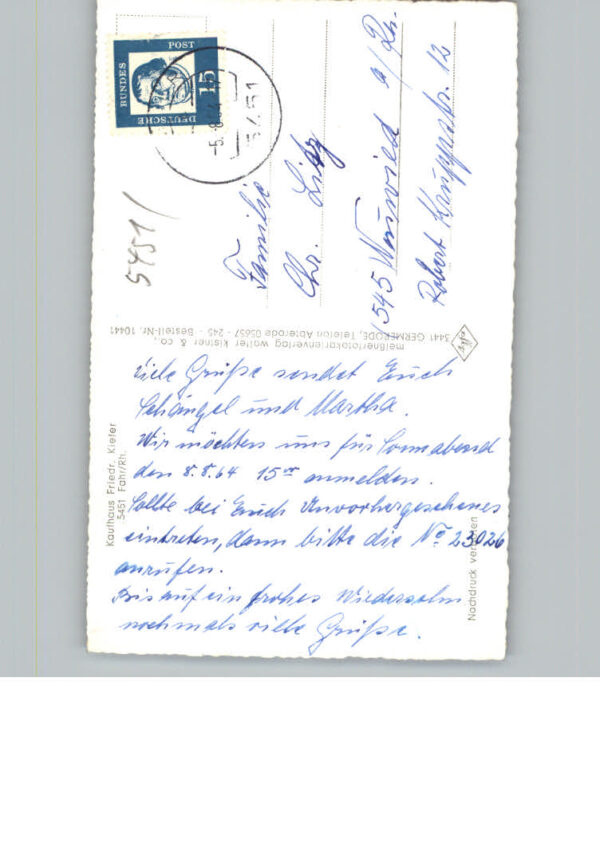 DEUTSCHE
BUNDES
POST
15
-5.8.64
5451
5451/
Familie
Chr.
545 Neuwied a/Rh.
Robert Krupp str. 12
meißnerfotokartenverlag walter kistner & co.,
3441 GERMERODE, Telefon Abterode 05657 - 245 - Bestell-Nr. 10441
Kaufhaus Friedr. Kiefer
5451 Fahr/Rh.
Viele Grüße sendet Euch
Schängel und Martha.
Wir möchten uns für Sonnabend
den 8.8.64 15ºº anmelden.
Sollte bei Euch Unvorhergesehenes
eintreten, dann bitte die Nº 23026
anrufen.
Bis auf ein frohes Wiedersehn
nochmals viele Grüße.
Nachdruck verboten